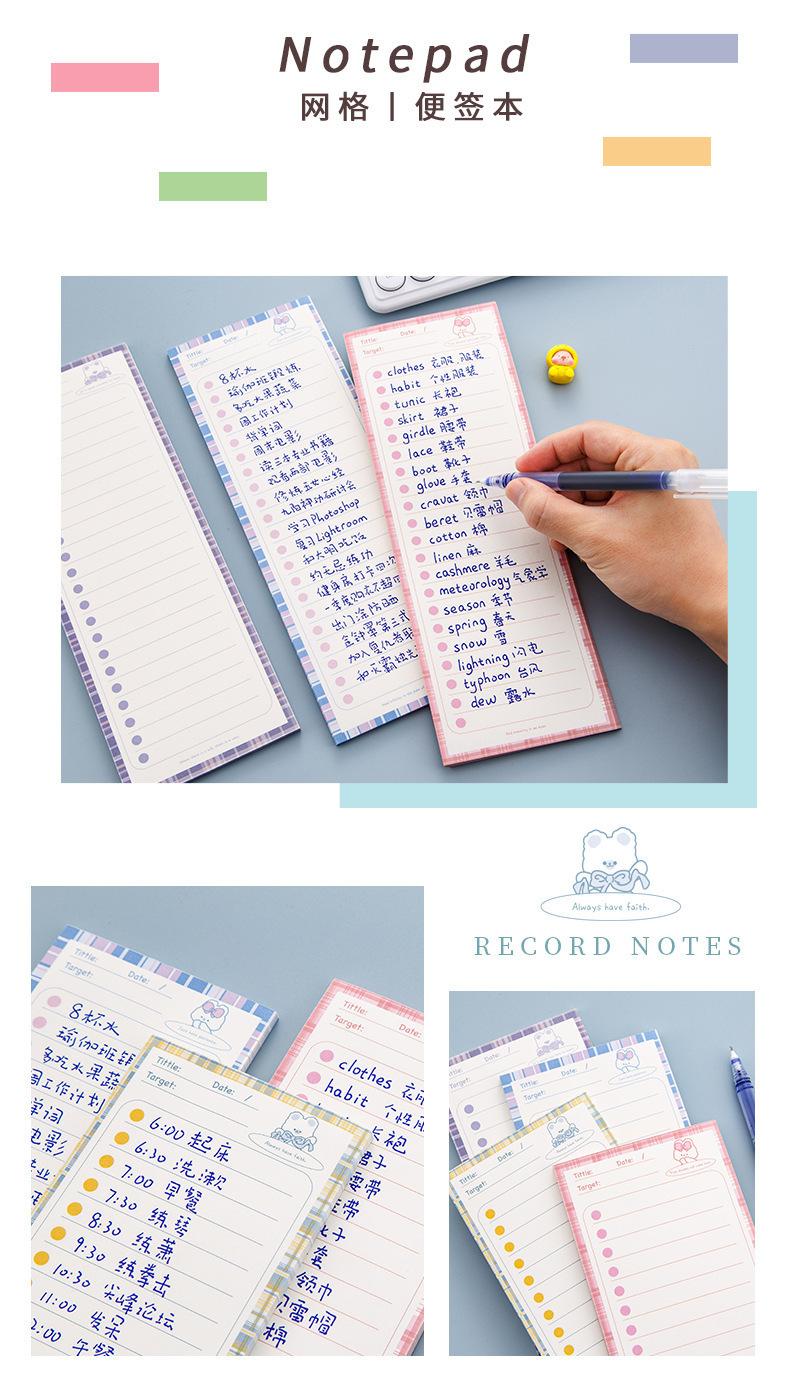 Notepad
网格丨便签本
Tittle:
Date: /
Target:
8杯水
瑜伽班锻炼
多吃水果蔬菜
周工作计划
背单词
周末电影
读三本专业书籍
观看两部电影
修炼玉女心经
九阳神功研讨会
学习Photoshop
复习Lightroom
和大明吃饭
约无忌练功
健身房打卡四次
季度购衣不超
出门涂防晒
金钟罩第三式
加入复仇者联
和灭霸抢先
Tittle:
Date: /
Target:
clothes 衣服.服装
habit 个性服装
tunic 长袍
skirt 裙子
girdle 腰带
lace 鞋带
boot 靴子
glove 手套
cravat 领巾
beret 贝雷帽
cotton 棉
linen 麻
cashmere 羊毛
meteorology 气象学
season 季节
spring 春天
snow 雪
lightning 闪电
typhoon 台风
dew 露水
Always have faith.
RECORD NOTES
Tittle:
Date: /
Target:
8杯水
瑜伽班锻
多吃水果蔬
周工作计划
单词
电影
Tittle:
Date:
Target:
clothes 衣服
habit 个性服
长袍
裙子
腰带
鞋带
子
套
领巾
贝雷帽
棉
Tittle:
Date: /
Target:
Always have faith.
6:00 起床
6:30 洗漱
7:00 早餐
7:30 练琴
8:30 练萧
9:30 练拳击
10:30 尖峰论坛
11:00 发呆
2:00 午餐
Date: /
Tittle:
Date: /
Target:
Tittle:
Date: /
Target:
Tittle:
Date: /
Target: